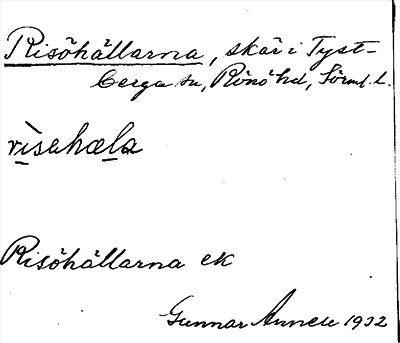 Risöhällarna, skär i Tyst-
berga sn, Rönö hd, Sörml. l.
risehæla
Risöhällarna ek
Gunnar Annell 1932